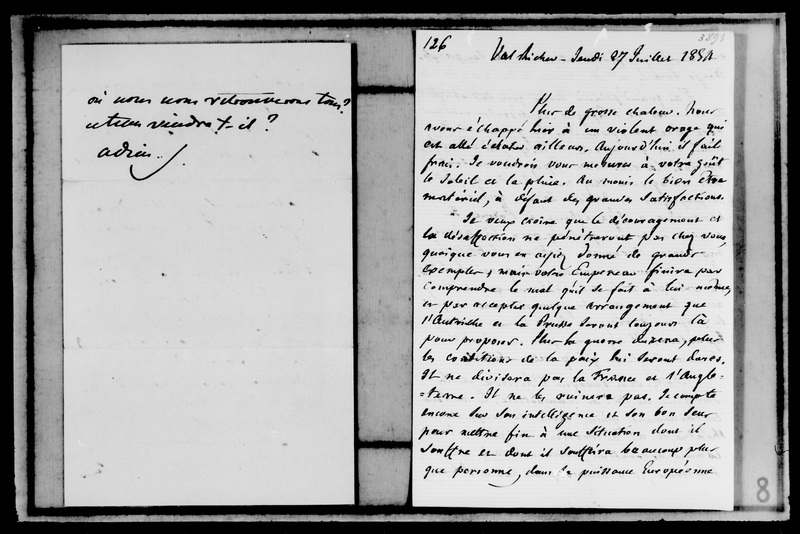 où nous nous retrouverons tous?
et tems viendra t-il?
adieu.
126
3891
Val Richer - Jeudi 27 Juillet 1854
Plus de grosse chaleur. Nous
avons échappé hier à un violent orage qui
est allé éclater ailleurs. Aujourd'hui il fait
frais. Je voudrois vous mesurer à votre goût
le Soleil et la pluie. Au moins le bien être
matériel, à défaut des grandes satisfactions.
Je veux croire que le découragement et
la désaffection ne pénétreront pas chez vous,
quoique vous en ayiez donné de grands
exemples; mais votre Empereur finira par
comprendre le mal qu'il se fait à lui même,
et par accepter quelque arrangement que
l'Autriche et la Prusse seront toujours là
pour proposer. Plus la guerre durera, plus
les conditions de la paix lui seront dures.
It ne divisera pas la France et l'Angle=
=terre. It ne les ruinera pas. Je compte
encore sur son intelligence et son bon sens
pour mettre fin à une situation dont il
souffre et dont il souffrira beaucoup plus
que personne, dans sa puissance Européenne
8